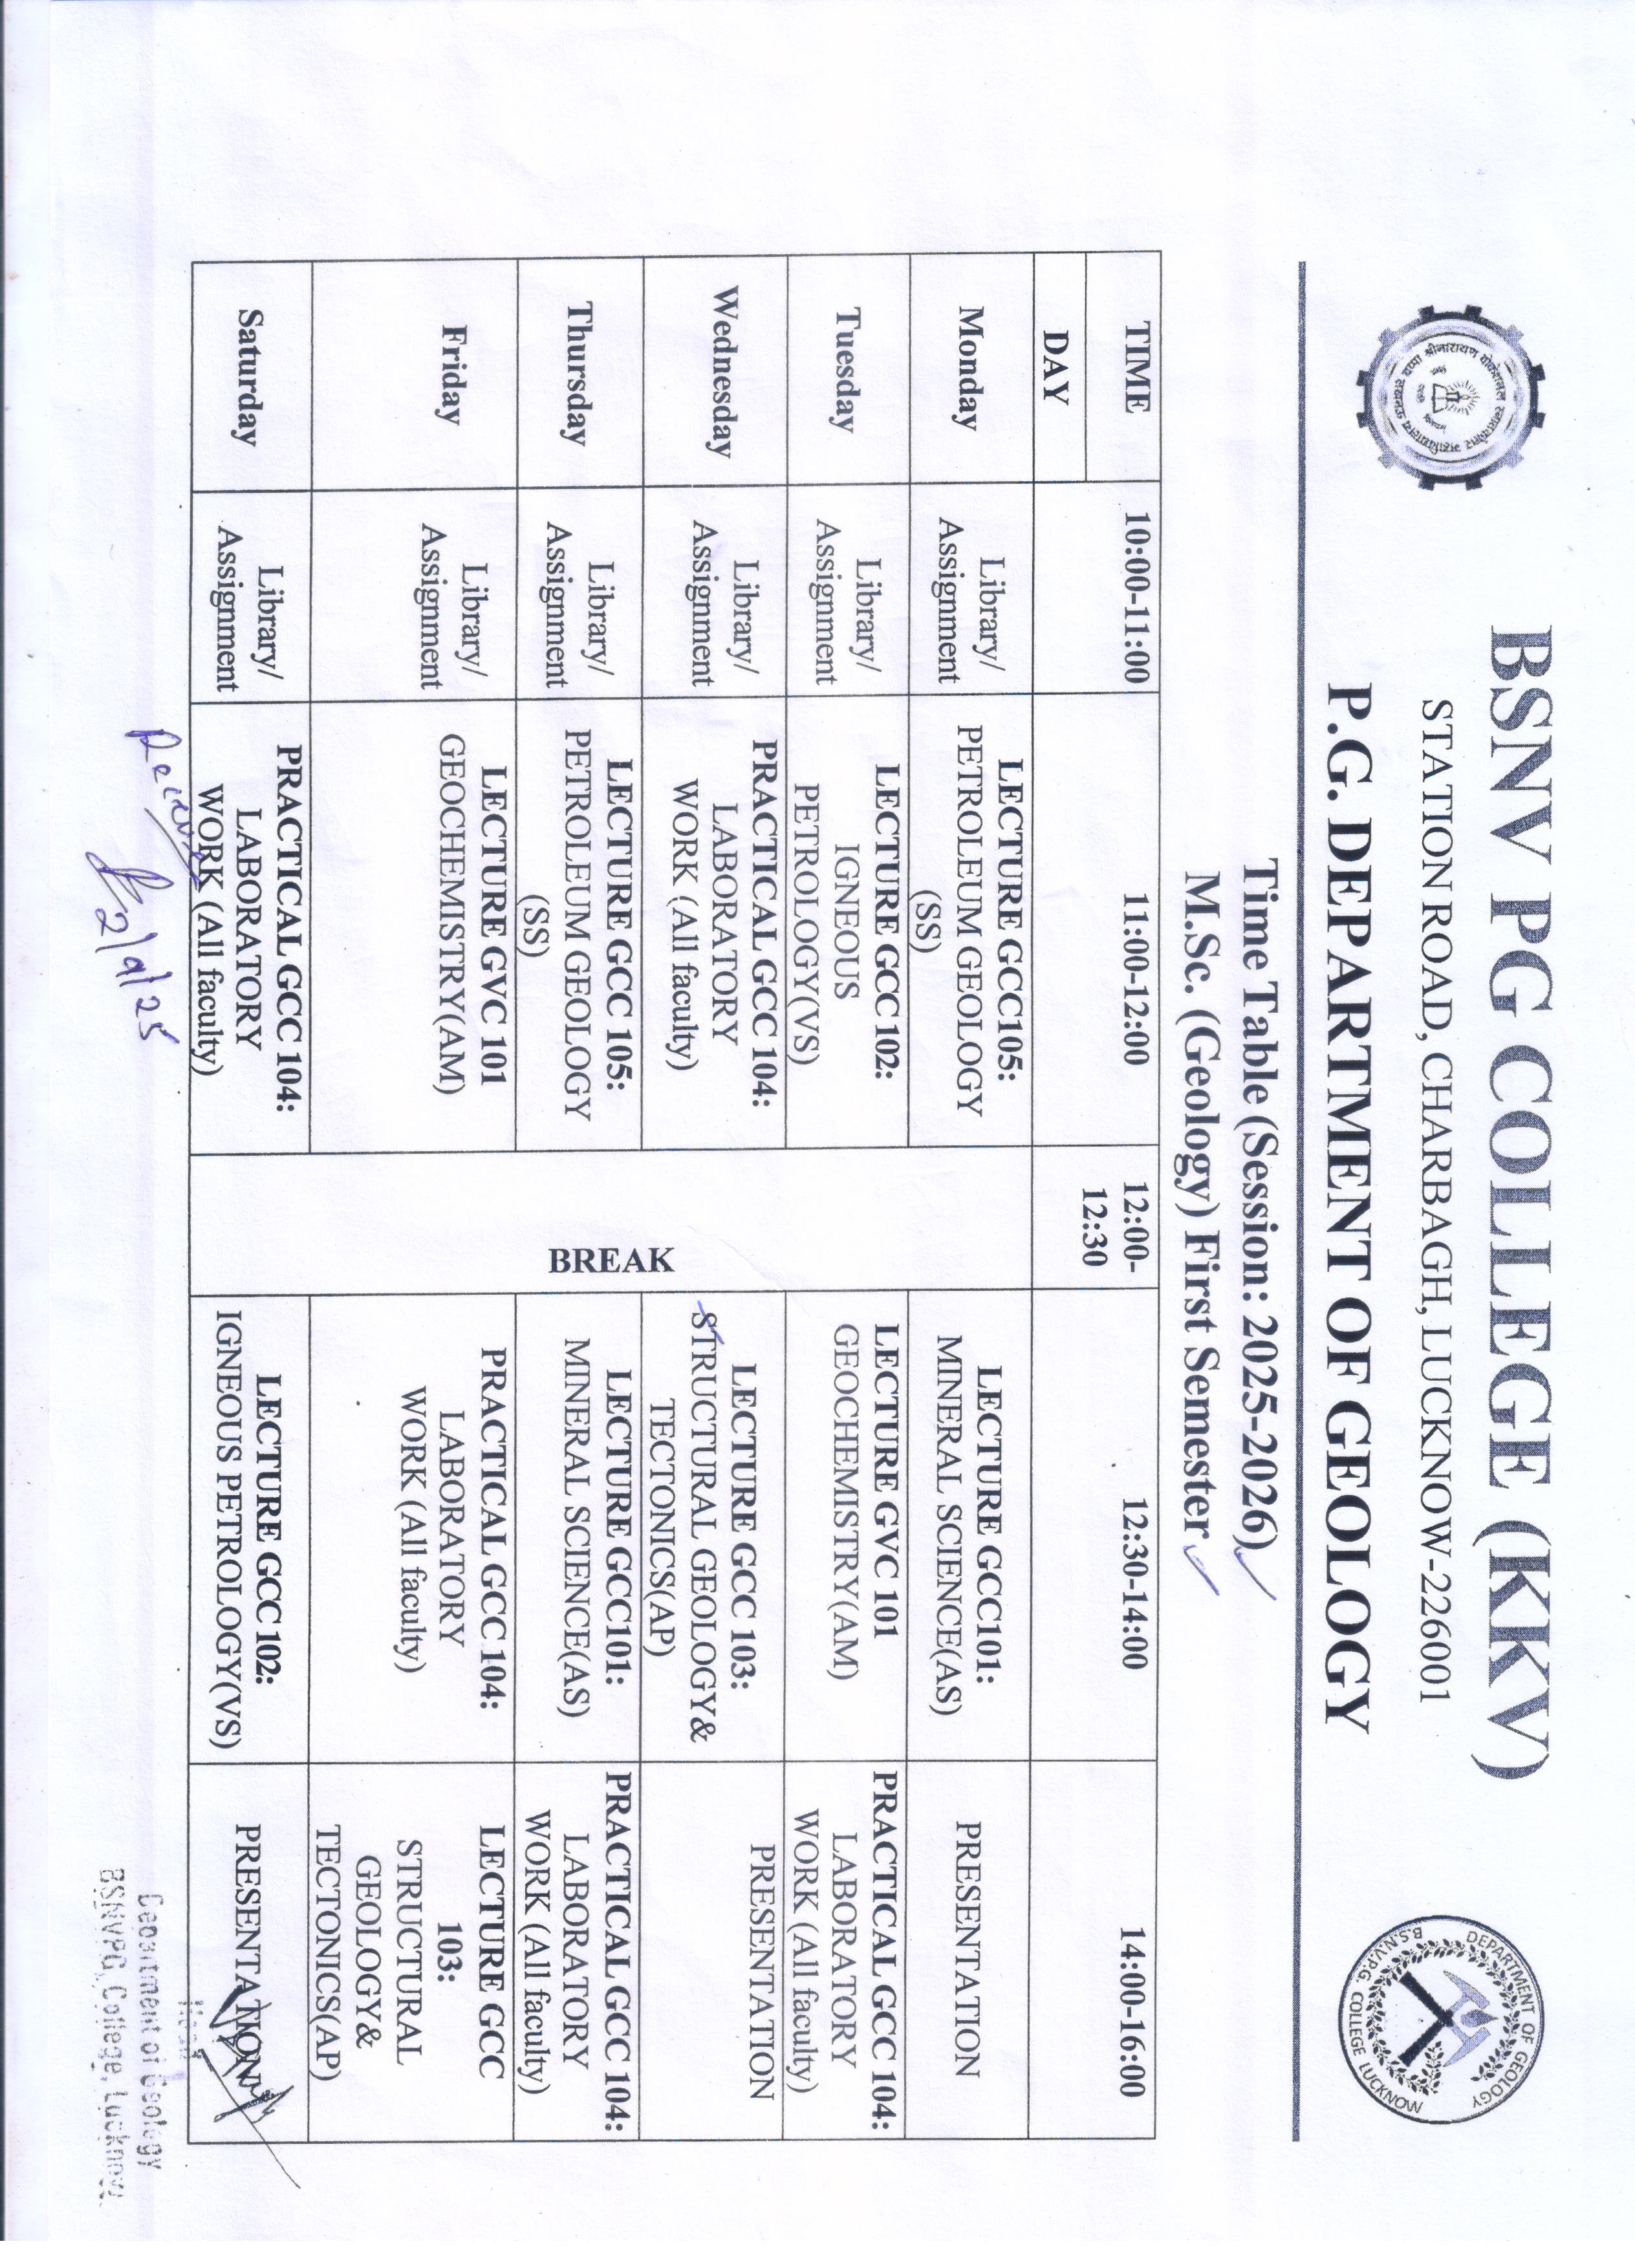 BSNV PG COLLEGE (KKV)
STATION ROAD, CHARBAGH, LUCKNOW-226001
P.G. DEPARTMENT OF GEOLOGY
DEPARTMENT OF GEOLOGY
B.S.N.V.P.G. COLLEGE LUCKNOW
Time Table (Session: 2025-2026)
M.Sc. (Geology) First Semester
TIME
10:00-11:00
11:00-12:00
12:00-
12:30
12:30-14:00
14:00-16:00
DAY
Monday
Library/
Assignment
LECTURE GCC105:
PETROLEUM GEOLOGY
(SS)
BREAK
LECTURE GCC101:
MINERAL SCIENCE(AS)
PRESENTATION
Tuesday
Library/
Assignment
LECTURE GCC 102:
IGNEOUS
PETROLOGY(VS)
LECTURE GVC 101
GEOCHEMISTRY(AM)
PRACTICAL GCC 104:
LABORATORY
WORK (All faculty)
Wednesday
Library/
Assignment
PRACTICAL GCC 104:
LABORATORY
WORK (All faculty)
LECTURE GCC 103:
STRUCTURAL GEOLOGY&
TECTONICS(AP)
PRESENTATION
Thursday
Library/
Assignment
LECTURE GCC 105:
PETROLEUM GEOLOGY
(SS)
LECTURE GCC101:
MINERAL SCIENCE(AS)
PRACTICAL GCC 104:
LABORATORY
WORK (All faculty)
Friday
Library/
Assignment
LECTURE GVC 101
GEOCHEMISTRY(AM)
PRACTICAL GCC 104:
LABORATORY
WORK (All faculty)
LECTURE GCC
103:
STRUCTURAL
GEOLOGY&
TECTONICS(AP)
Saturday
Library/
Assignment
PRACTICAL GCC 104:
LABORATORY
WORK (All faculty)
LECTURE GCC 102:
IGNEOUS PETROLOGY(VS)
PRESENTATION
2/9/25
Head
Department of Geology
BSNVPG, College, Lucknow.